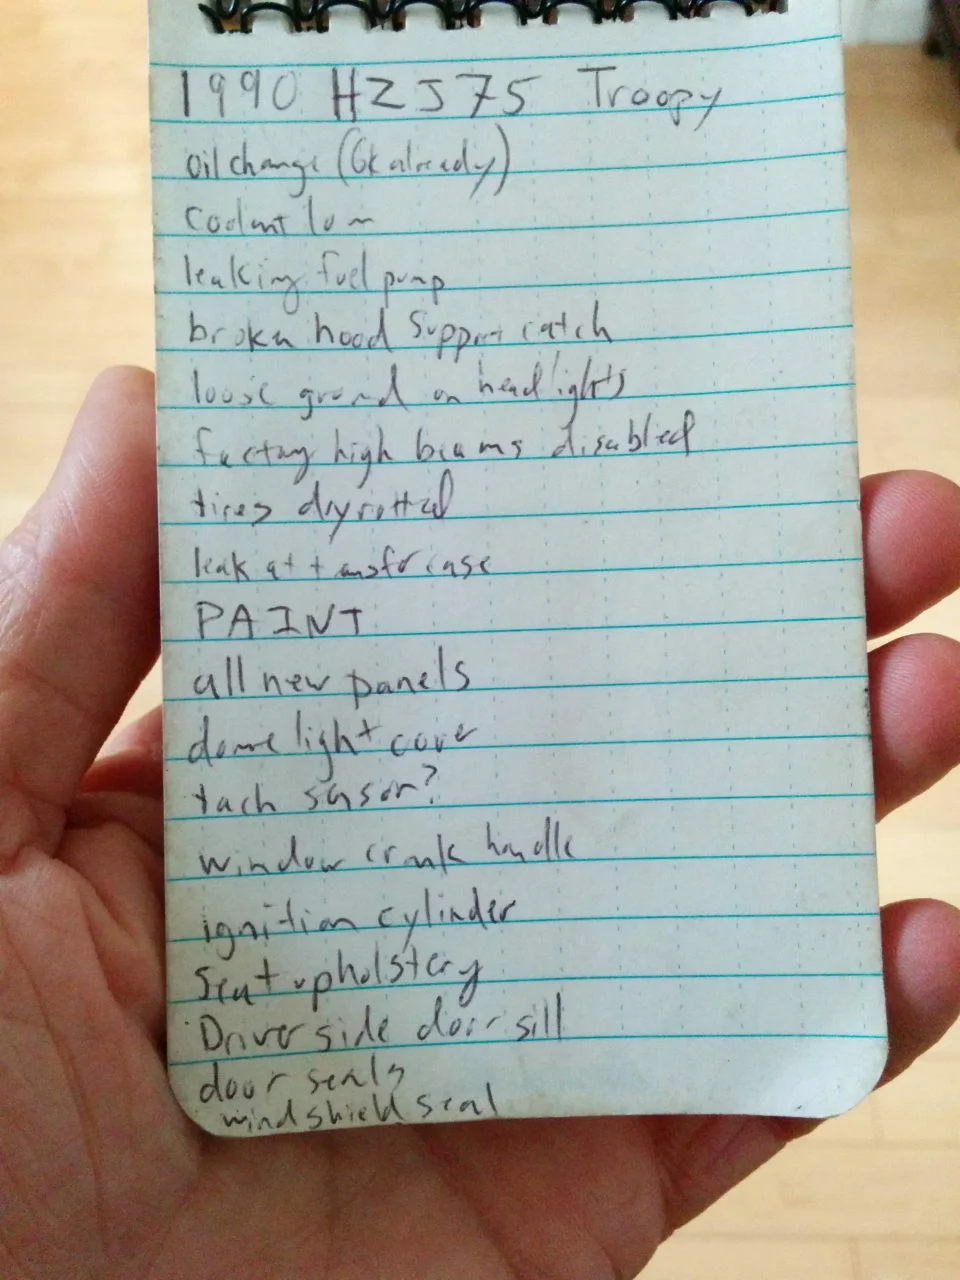 1990 HZJ75 Troopy
oil change (6k already)
coolant low
leaking fuel pump
broken hood support catch
loose ground on headlights
factory high beams disabled
tires dryrotted
leak at transfer case
PAINT
all new panels
dome light cover
tach sensor?
window crank handle
ignition cylinder
Seat upholstery
Driver side door sill
door seals
windshield seal